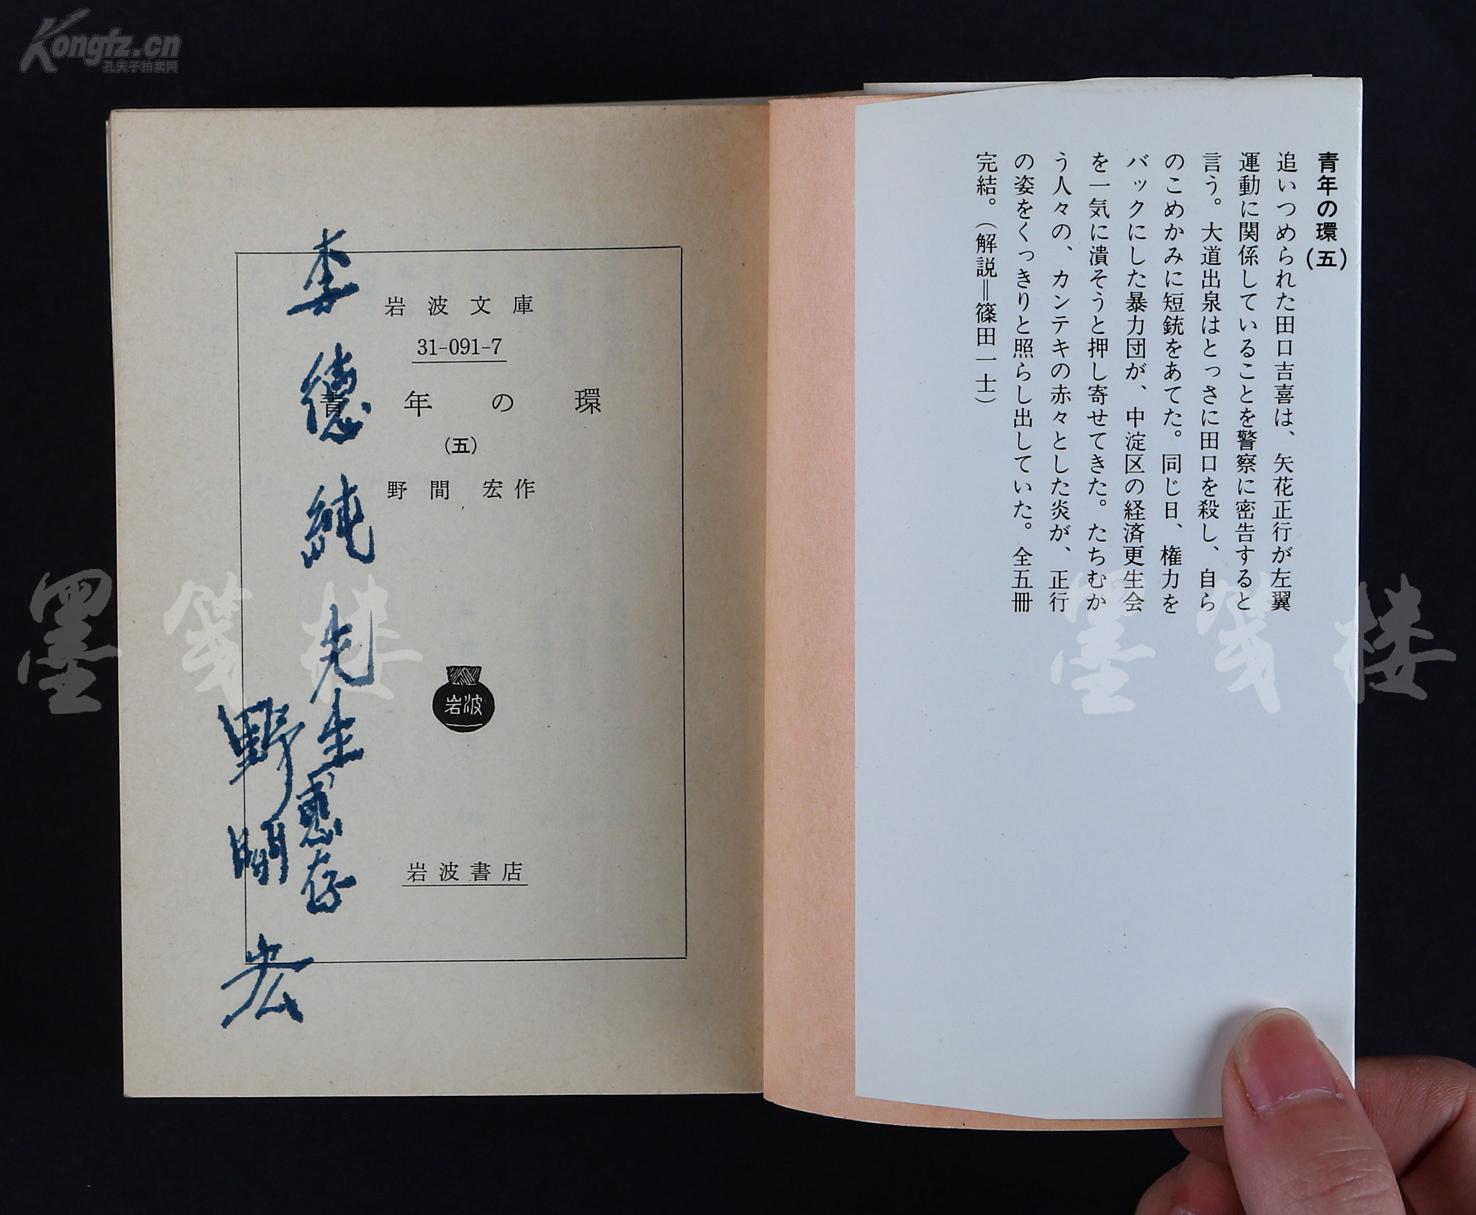 Kongfz.cn
孔夫子拍卖网
青年の環(五)
追いつめられた田口吉喜は、矢花正行が左翼
運動に関係していることを警察に密告すると
言う。大道出泉はとっさに田口を殺し、自ら
のこめかみに短銃をあてた。同じ日、権力を
バックにした暴力団が、中淀区の経済更生会
を一気に潰そうと押し寄せてきた。たちむか
う人々の、カンテキの赤々とした炎が、正行
の姿をくっきりと照らし出していた。全五冊
完結。(解説=篠田一士)
岩波文庫
31-091-7
青年の環
(五)
野間 宏作
岩波
岩波書店
李德純先生惠存
野間宏
墨笺楼
墨笺楼